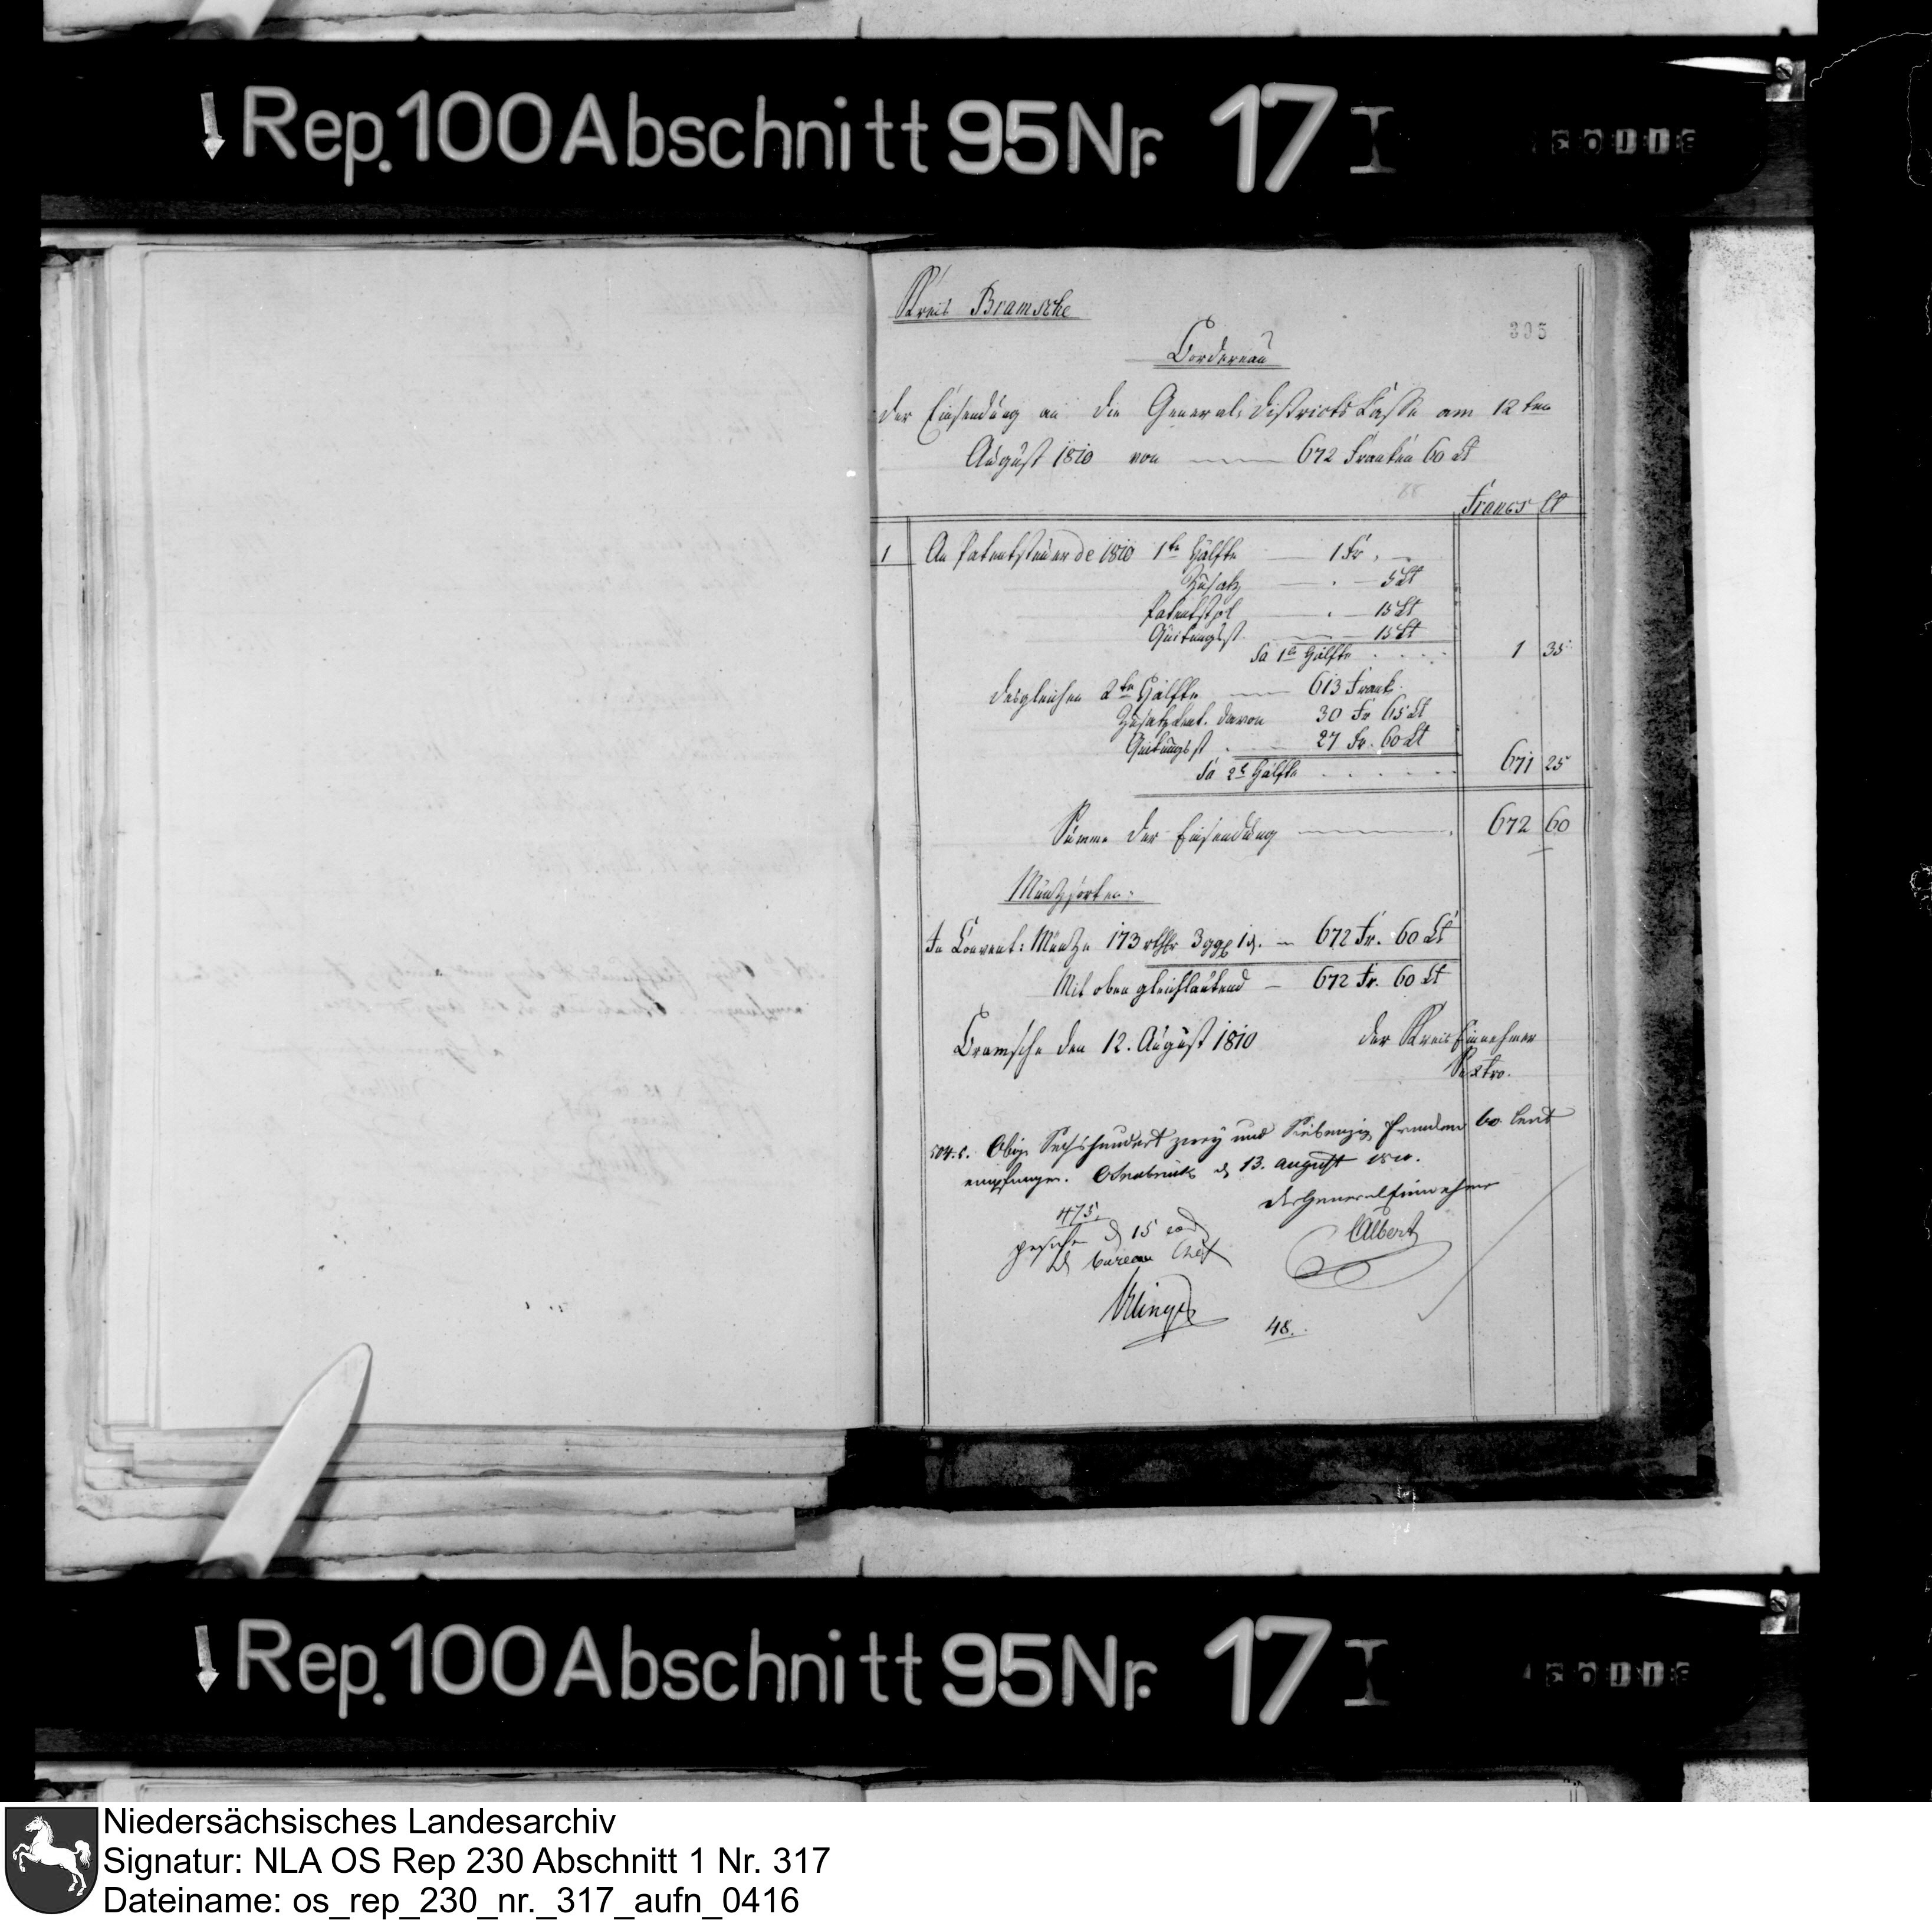 Rep. 100 Abschnitt 95 Nr. 17 I
Kreis Bramsche
395
Bordereau
der Einsendung an die General-Districts Casse am 12ten
August 1810 von 672 Franken 60 Ct
Francs Ct
1 An Patentsteuer de 1810 1te Hälfte 1 Fr. —
Zusatz — . — 5 Ct
Patentstpl — . — 15 Ct
Quitungsst. — 15 Ct
Sa 1te Hälfte . . . . 1 35
desgleichen 2te Hälfte — 613 Frank.
Zusatz Cent. davon 30 Fr 65 Ct
Quitungsst . — 27 Fr. 60 Ct
Sa 2te Hälfte . . . . . . 671 25
Summe der Einsendung 672 60
Müntzsorten:
In Convent: Müntze 173 rthlr 3 ggr 1 d. — 672 Fr. 60 Ct
Mit oben gleichlautend — 672 Fr. 60 Ct
Bramsche den 12. August 1810 der Kreis Einnehmer
Sextro.
Obige Sechshundert zwey und Siebenzig Franken 60 Cent
empfangen. Osnabrück d 13. august 1810.
der General Einnehmer
475.
gesehen d 15 eod
d bureau Chef
CAlbert
48.
Rep. 100 Abschnitt 95 Nr. 17 I
Niedersächsisches Landesarchiv
Signatur: NLA OS Rep 230 Abschnitt 1 Nr. 317
Dateiname: os_rep_230_nr._317_aufn_0416